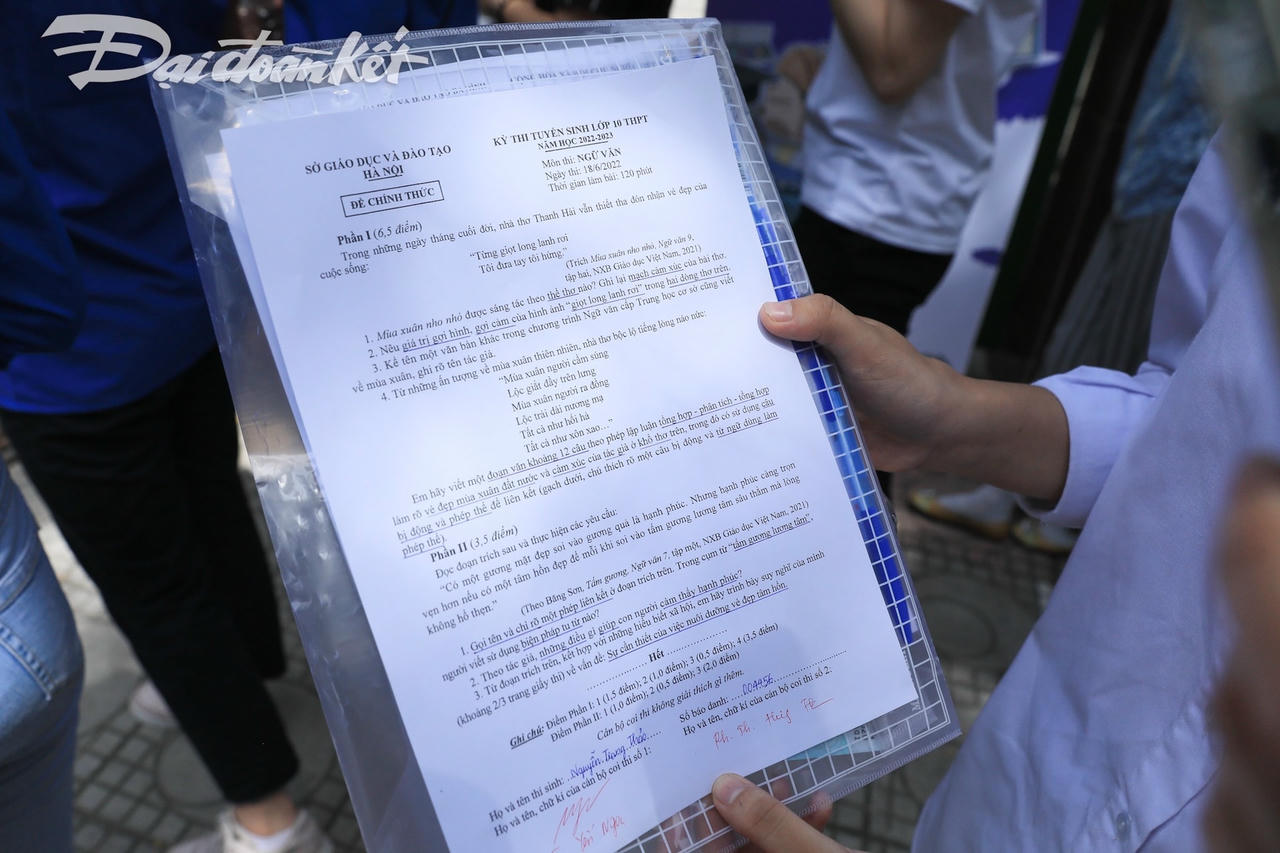 Đại đoàn kết
SỞ GIÁO DỤC VÀ ĐÀO TẠO
HÀ NỘI
ĐỀ CHÍNH THỨC
KỲ THI TUYỂN SINH LỚP 10 THPT
NĂM HỌC 2022-2023
Môn thi: NGỮ VĂN
Ngày thi: 18/6/2022
Thời gian làm bài: 120 phút
Phần I (6,5 điểm)
Trong những ngày tháng cuối đời, nhà thơ Thanh Hải vẫn thiết tha đón nhận vẻ đẹp của
cuộc sống:
“Từng giọt long lanh rơi
Tôi đưa tay tôi hứng.”
(Trích Mùa xuân nho nhỏ, Ngữ văn 9,
tập hai, NXB Giáo dục Việt Nam, 2021)
1. Mùa xuân nho nhỏ được sáng tác theo thể thơ nào? Ghi lại mạch cảm xúc của bài thơ.
2. Nêu giá trị gợi hình, gợi cảm của hình ảnh “giọt long lanh rơi” trong hai dòng thơ trên.
3. Kể tên một văn bản khác trong chương trình Ngữ văn cấp Trung học cơ sở cũng viết
về mùa xuân, ghi rõ tên tác giả.
4. Từ những ấn tượng về mùa xuân thiên nhiên, nhà thơ bộc lộ tiếng lòng náo nức:
“Mùa xuân người cầm súng
Lộc giắt đầy trên lưng
Mùa xuân người ra đồng
Lộc trải dài nương mạ
Tất cả như hối hả
Tất cả như xôn xao...”
Em hãy viết một đoạn văn khoảng 12 câu theo phép lập luận tổng hợp - phân tích - tổng hợp
làm rõ vẻ đẹp mùa xuân đất nước và cảm xúc của tác giả ở khổ thơ trên, trong đó có sử dụng câu
bị động và phép thế để liên kết (gạch dưới, chú thích rõ một câu bị động và từ ngữ dùng làm
phép thế).
Phần II (3,5 điểm)
Đọc đoạn trích sau và thực hiện các yêu cầu:
“Có một gương mặt đẹp soi vào gương quả là hạnh phúc. Nhưng hạnh phúc càng trọn
vẹn hơn nếu có một tâm hồn đẹp để mỗi khi soi vào tấm gương lương tâm sâu thẳm mà lòng
không hổ thẹn.”
(Theo Băng Sơn, Tấm gương, Ngữ văn 7, tập một, NXB Giáo dục Việt Nam, 2021)
1. Gọi tên và chỉ rõ một phép liên kết ở đoạn trích trên. Trong cụm từ “tấm gương lương tâm”,
người viết sử dụng biện pháp tu từ nào?
2. Theo tác giả, những điều gì giúp con người cảm thấy hạnh phúc?
3. Từ đoạn trích trên, kết hợp với những hiểu biết xã hội, em hãy trình bày suy nghĩ của mình
(khoảng 2/3 trang giấy thi) về vấn đề: Sự cần thiết của việc nuôi dưỡng vẻ đẹp tâm hồn.
Hết
Ghi chú: Điểm Phần I: 1 (1,5 điểm); 2 (1,0 điểm); 3 (0,5 điểm); 4 (3,5 điểm)
Điểm Phần II: 1 (1,0 điểm); 2 (0,5 điểm); 3 (2,0 điểm)
Cán bộ coi thi không giải thích gì thêm.
Họ và tên thí sinh: Nguyễn Trọng Số báo danh: 004956
Họ và tên, chữ kí của cán bộ coi thi số 1: Họ và tên, chữ kí của cán bộ coi thi số 2: